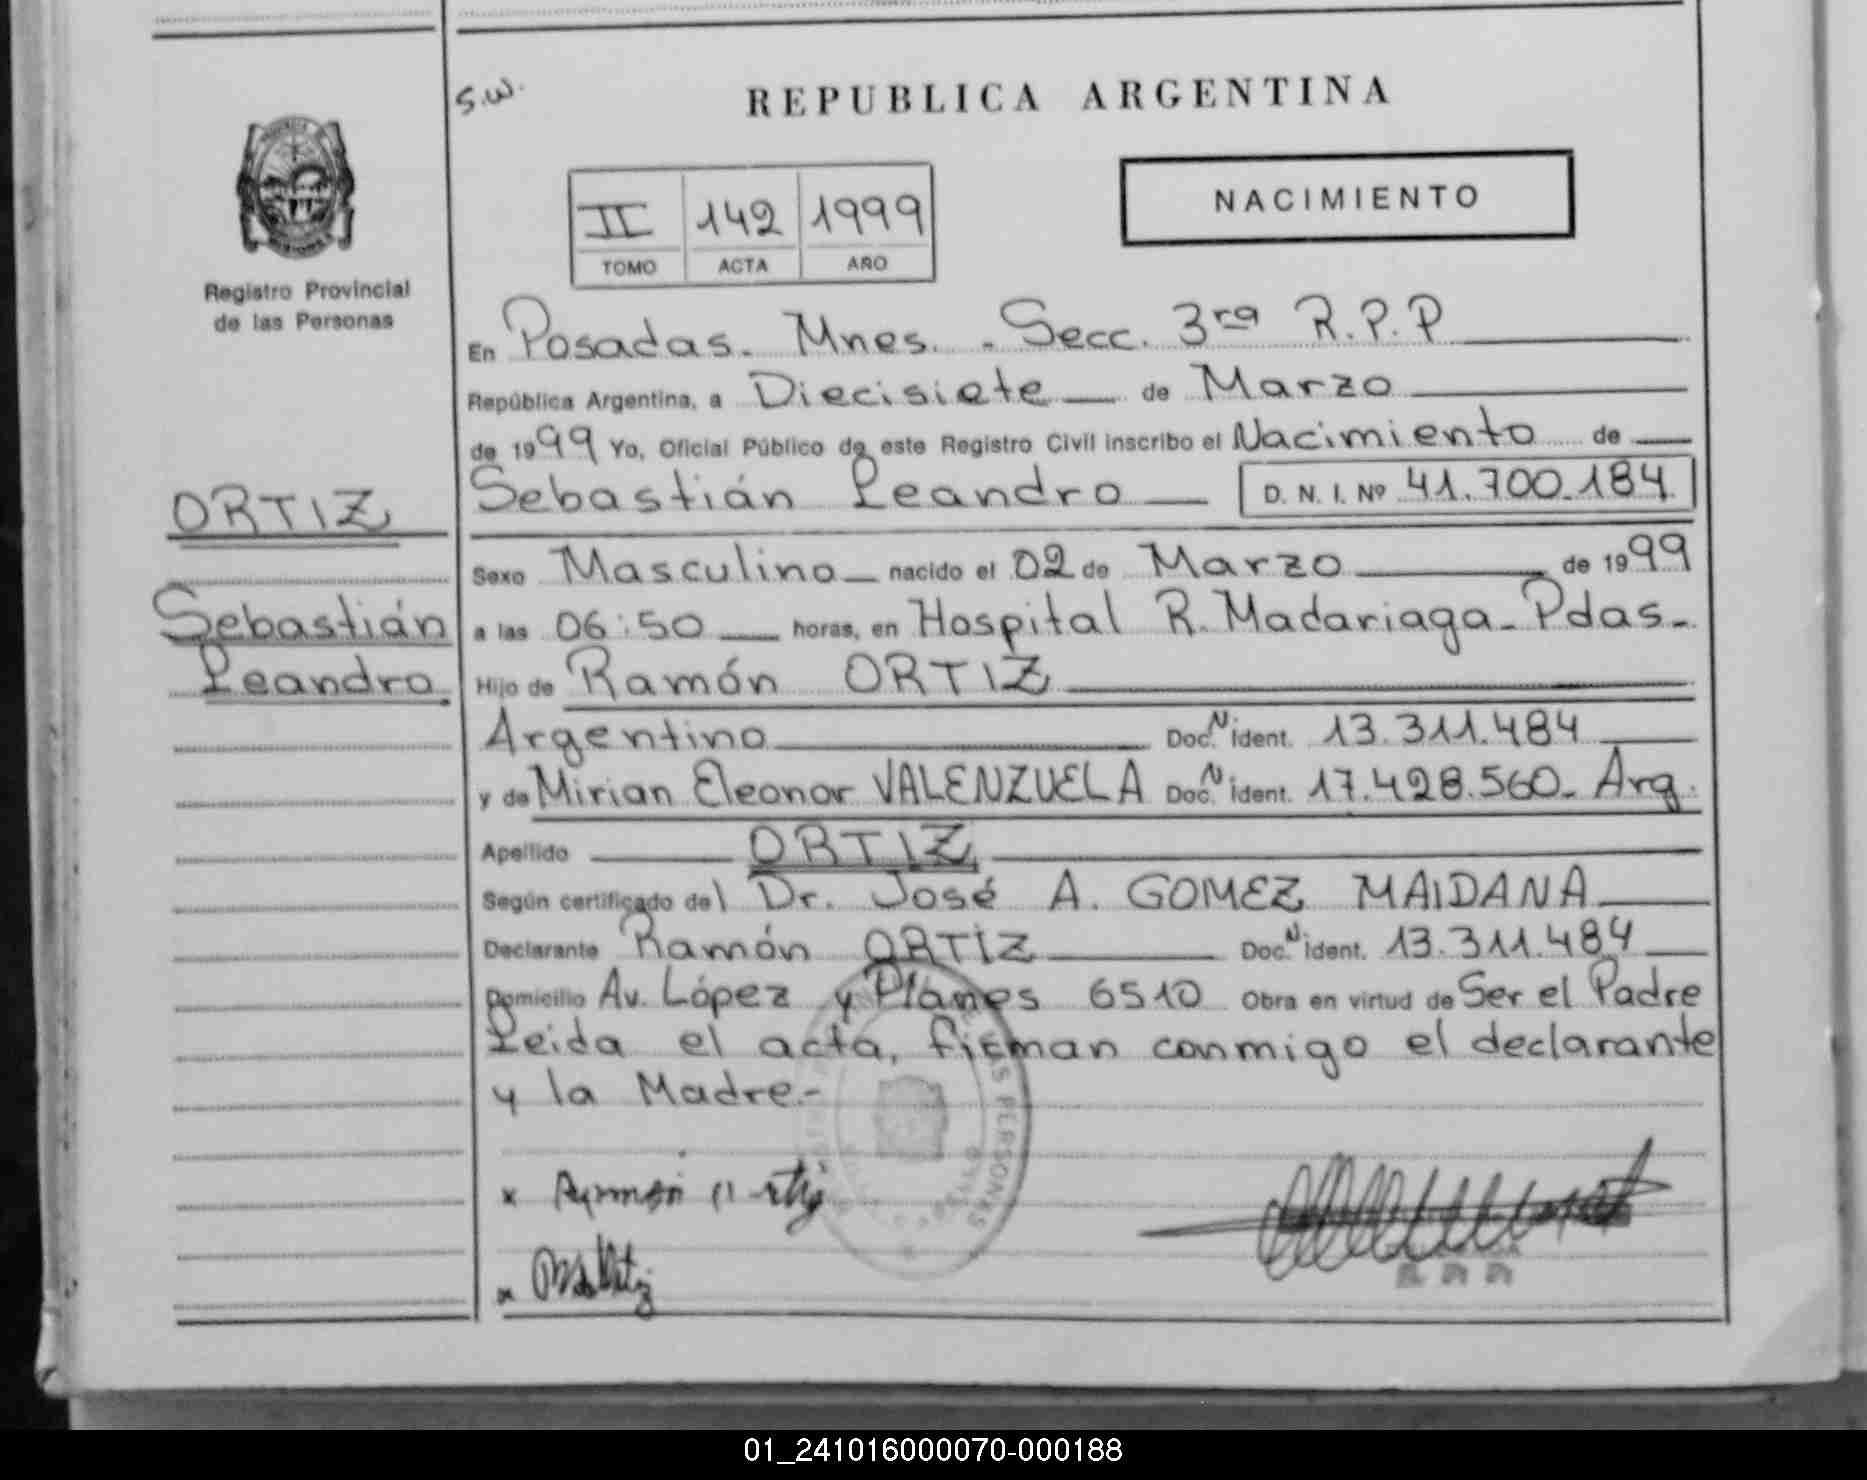 S.W.
REPUBLICA ARGENTINA
NACIMIENTO
II 142 1999
TOMO ACTA AÑO
Registro Provincial
de las Personas
En Posadas. Mnes. - Secc. 3ra R.P.P
República Argentina, a Diecisiete de Marzo
de 1999 Yo, Oficial Público de este Registro Civil inscribo el Nacimiento de
Sebastián Leandro D. N. I. Nº 41.700.184
ORTIZ
Sebastián
Leandro
Sexo Masculino nacido el 02 de Marzo de 1999
a las 06:50 horas, en Hospital R. Madariaga - Pdas -
Hijo de Ramón ORTIZ
Argentino Doc. N ident. 13.311.484
y de Mirian Eleonor VALENZUELA Doc. N ident. 17.428.560 - Arg.
Apellido ORTIZ
Según certificado del Dr. José A. GOMEZ MAIDANA
Declarante Ramón ORTIZ Doc. N ident. 13.311.484
Domicilio Av. López y Planes 6510 Obra en virtud de Ser el Padre
Leida el acta, firman conmigo el declarante
y la Madre.-
x Ramón Ortiz
x
LAS PERSONAS
01_241016000070-000188